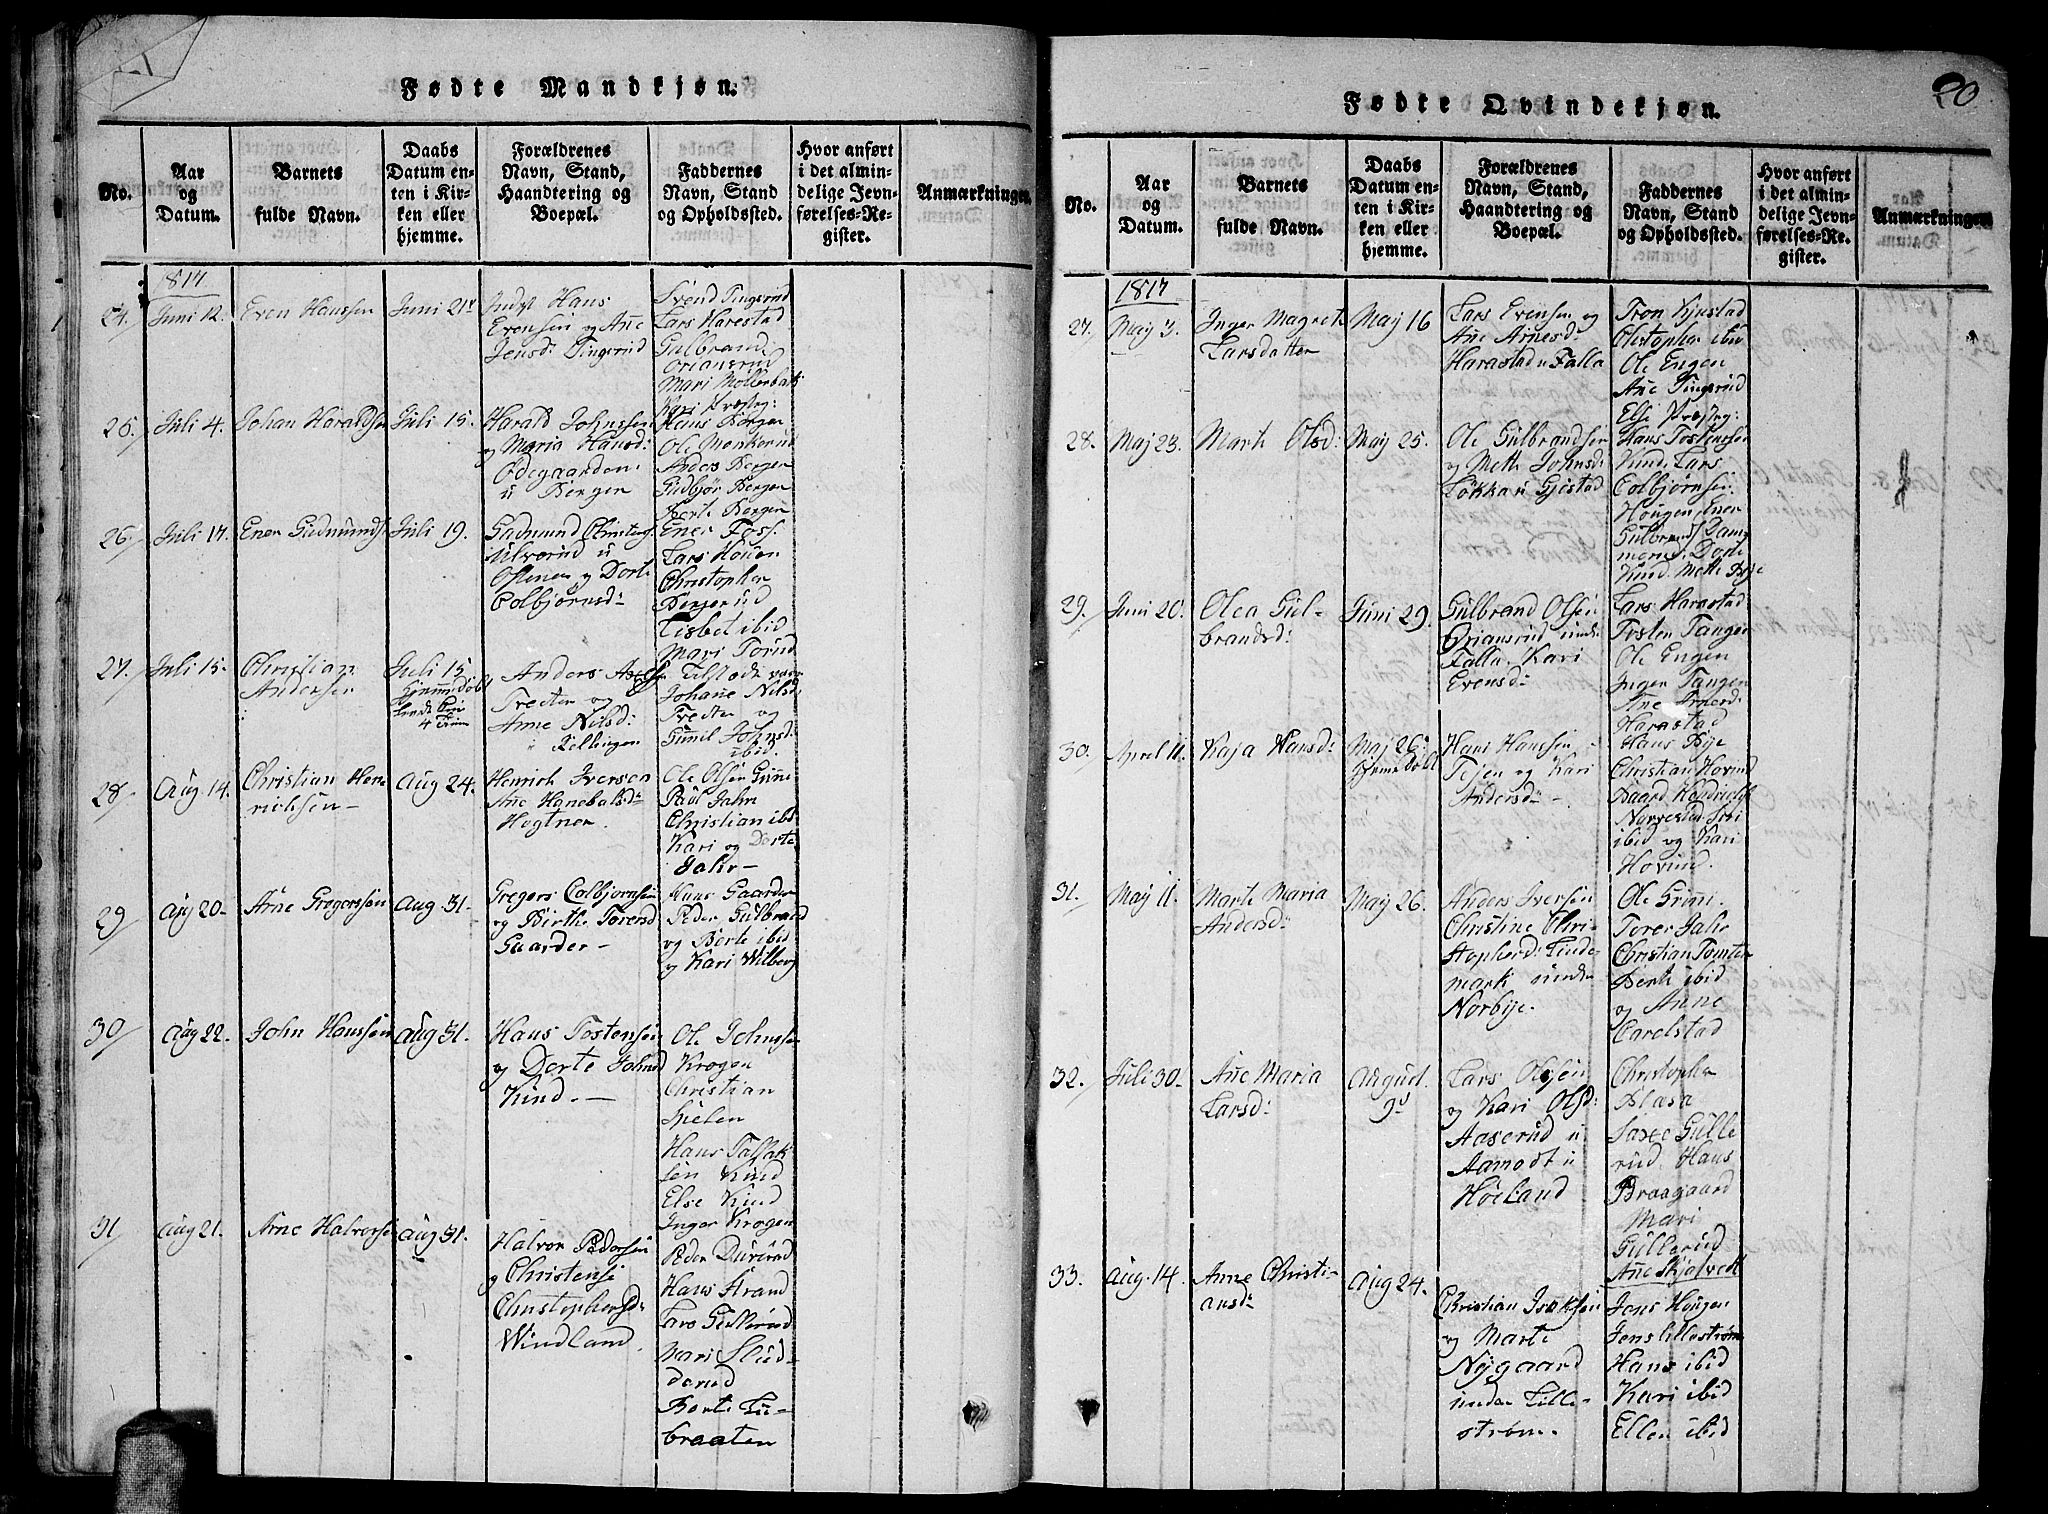 Fødte Mandkjøn.
No.
Aar
og
Datum.
Barnets
fulde Navn.
Daabs
Datum en-
ten i Kir-
ken eller
hjemme.
Forældrenes
Navn, Stand,
Haandtering og
Boepæl.
Faddernes
Navn, Stand
og Opholdssted.
Hvor anført
i det almin-
delige Jevn-
førelses-Re-
gister.
Anmærkninger
1817
24.
Juni 12.
Even Hanssen
Juni 21
Indst Hans
Evensen og Ane
Jensd: Tingsrud
Svend Tingsrud
Lars Harestad
Gulbrand
Oriansrud
Mari Møllerbak
Kari Præsteg:
25.
Juli 4.
Johan Haraldsen
Juli 15.
Harald Johnssen
og Maria Hansd:
Ødegaarden
u Bergen
Hens Bergen
Ole Menkerud
Anders Bergen
Gudbjør Bergen
Berte Bergen
26.
Juli 17.
Ener Gudmunds
Juli 19.
Gudmund Christens
Ulverud u
Ofstenes og Dorte
Colbjørnsd:
Ener Foss.
Lars Houen
Christopher
Bergerud
Lisbet ibid
Mari Torud
27.
Juli 15.
Christian
Andersen
Juli 15
Hjemmedøbt
Anders
Tredten og
Anne Nilsd:
u Kellingen
Tilstæde vare
Johane Nilsd
Tredten og
Gunil Johnsd:
ibid.
28
Aug 14.
Christian Hen
richsen
Aug 24.
Henrich Iversen
Ane Hanebalsd:
Hogtner.
Ole Olsen Grine
Paul Jahr
Christian ibid
Kari og Dorte
Jahr
29
Aug 20
Arne Gregerssen
Aug 31.
Gregers Colbjørnsen
og Birthe Toresd
Gaarder
Hans Gaarder
Peder Gulbrand
og Berte ibid
og Kari Wilberg
30
Aug 22.
John Hanssen
Aug 31.
Hans Tostensen
og Dorte Johnsd
Kind.
Ole Johnssen
Krogen
Christian
Spielen
Hans Tollak
sen Kind
Else Kind
Inger Krogen
31
Aug 21.
Arne Halvorsen
Aug 31.
Halvor Pedersen
og Christense
Christophersd:
Windland
Peder Duserud
Hans Strand
Lars Gullerud
Mari Slud
derud
Berte Lu-
braaten
20
Fødte Qvindekjøn.
No.
Aar
og
Datum.
Barnets
fulde Navn.
Daabs
Datum en-
ten i Kir-
ken eller
hjemme.
Forældrenes
Navn, Stand,
Haandtering og
Boepæl.
Faddernes
Navn, Stand
og Opholdssted.
Hvor anført
i det almin-
delige Jevn-
førelses-Re-
gister.
Anmærkninger
1817
27.
May 3.
Inger Magrete
Larsdatter
May 16
Lars Evensen og
Ane Arnesd:
Harastad u Falla
Tron Kjustad
Christopher ibid
Ole Engen
Ane Tingsrud
Else Præsteg:
28.
Maj 23.
Marte Olsd:
May 25.
Ole Gulbrandsen
og Mette Johnsd:
Løkka u Gjestad
Hans Tostenssen
Kind, Lars
Colbjørnsen
Hougen, Ener
Gulbrands
Dorte
Kind. Mette Bye
29.
Juni 20.
Olea Gul-
brandsd:
Juni 29.
Gulbrand Olsen
Oriansrud under
Falla, Kari
Evensd:
Lars Harastad
Tosten Tangen
Ole Engen
Inger Tangen
Ane Arnesd:
Harastad
30.
April 11.
Kaja Hansd:
Maj 26.
Hjemme Døbt
Hans Hanssen
Tejen og Kari
Andersd:
Hans Bye
Christian Hovind
Baard Hendrichs
Norrestad
ibid og Kari
Hovind.
31.
May 11.
Marte Maria
Andersd:
May 26.
Anders Iversen
Christine Chri-
stopherd: Linde-
mark under
Norbye.
Ole Grini.
Torer Jahr
Christian Tomten
Berte ibid
og Anne
Carelstad
32.
Juli 30.
Ane Maria
Larsd:
August
9d
Lars Olsen
og Kari Olsd:
Aaserud u
Aamodt u
Høeland
Christopher
Blaxa
Saxe Gulle
rud Hans
Braagaard
Mari
Gullerud
Ane Skjolvedt
33.
Aug. 14.
Anne Christi-
ansd:
Aug 24.
Christian Isaksen
og Marte
Nygaard
under Lille-
strøm.
Jens Hougen
Jens Lillestrøm
Hans ibid
Kari ibid
Ellen ibid